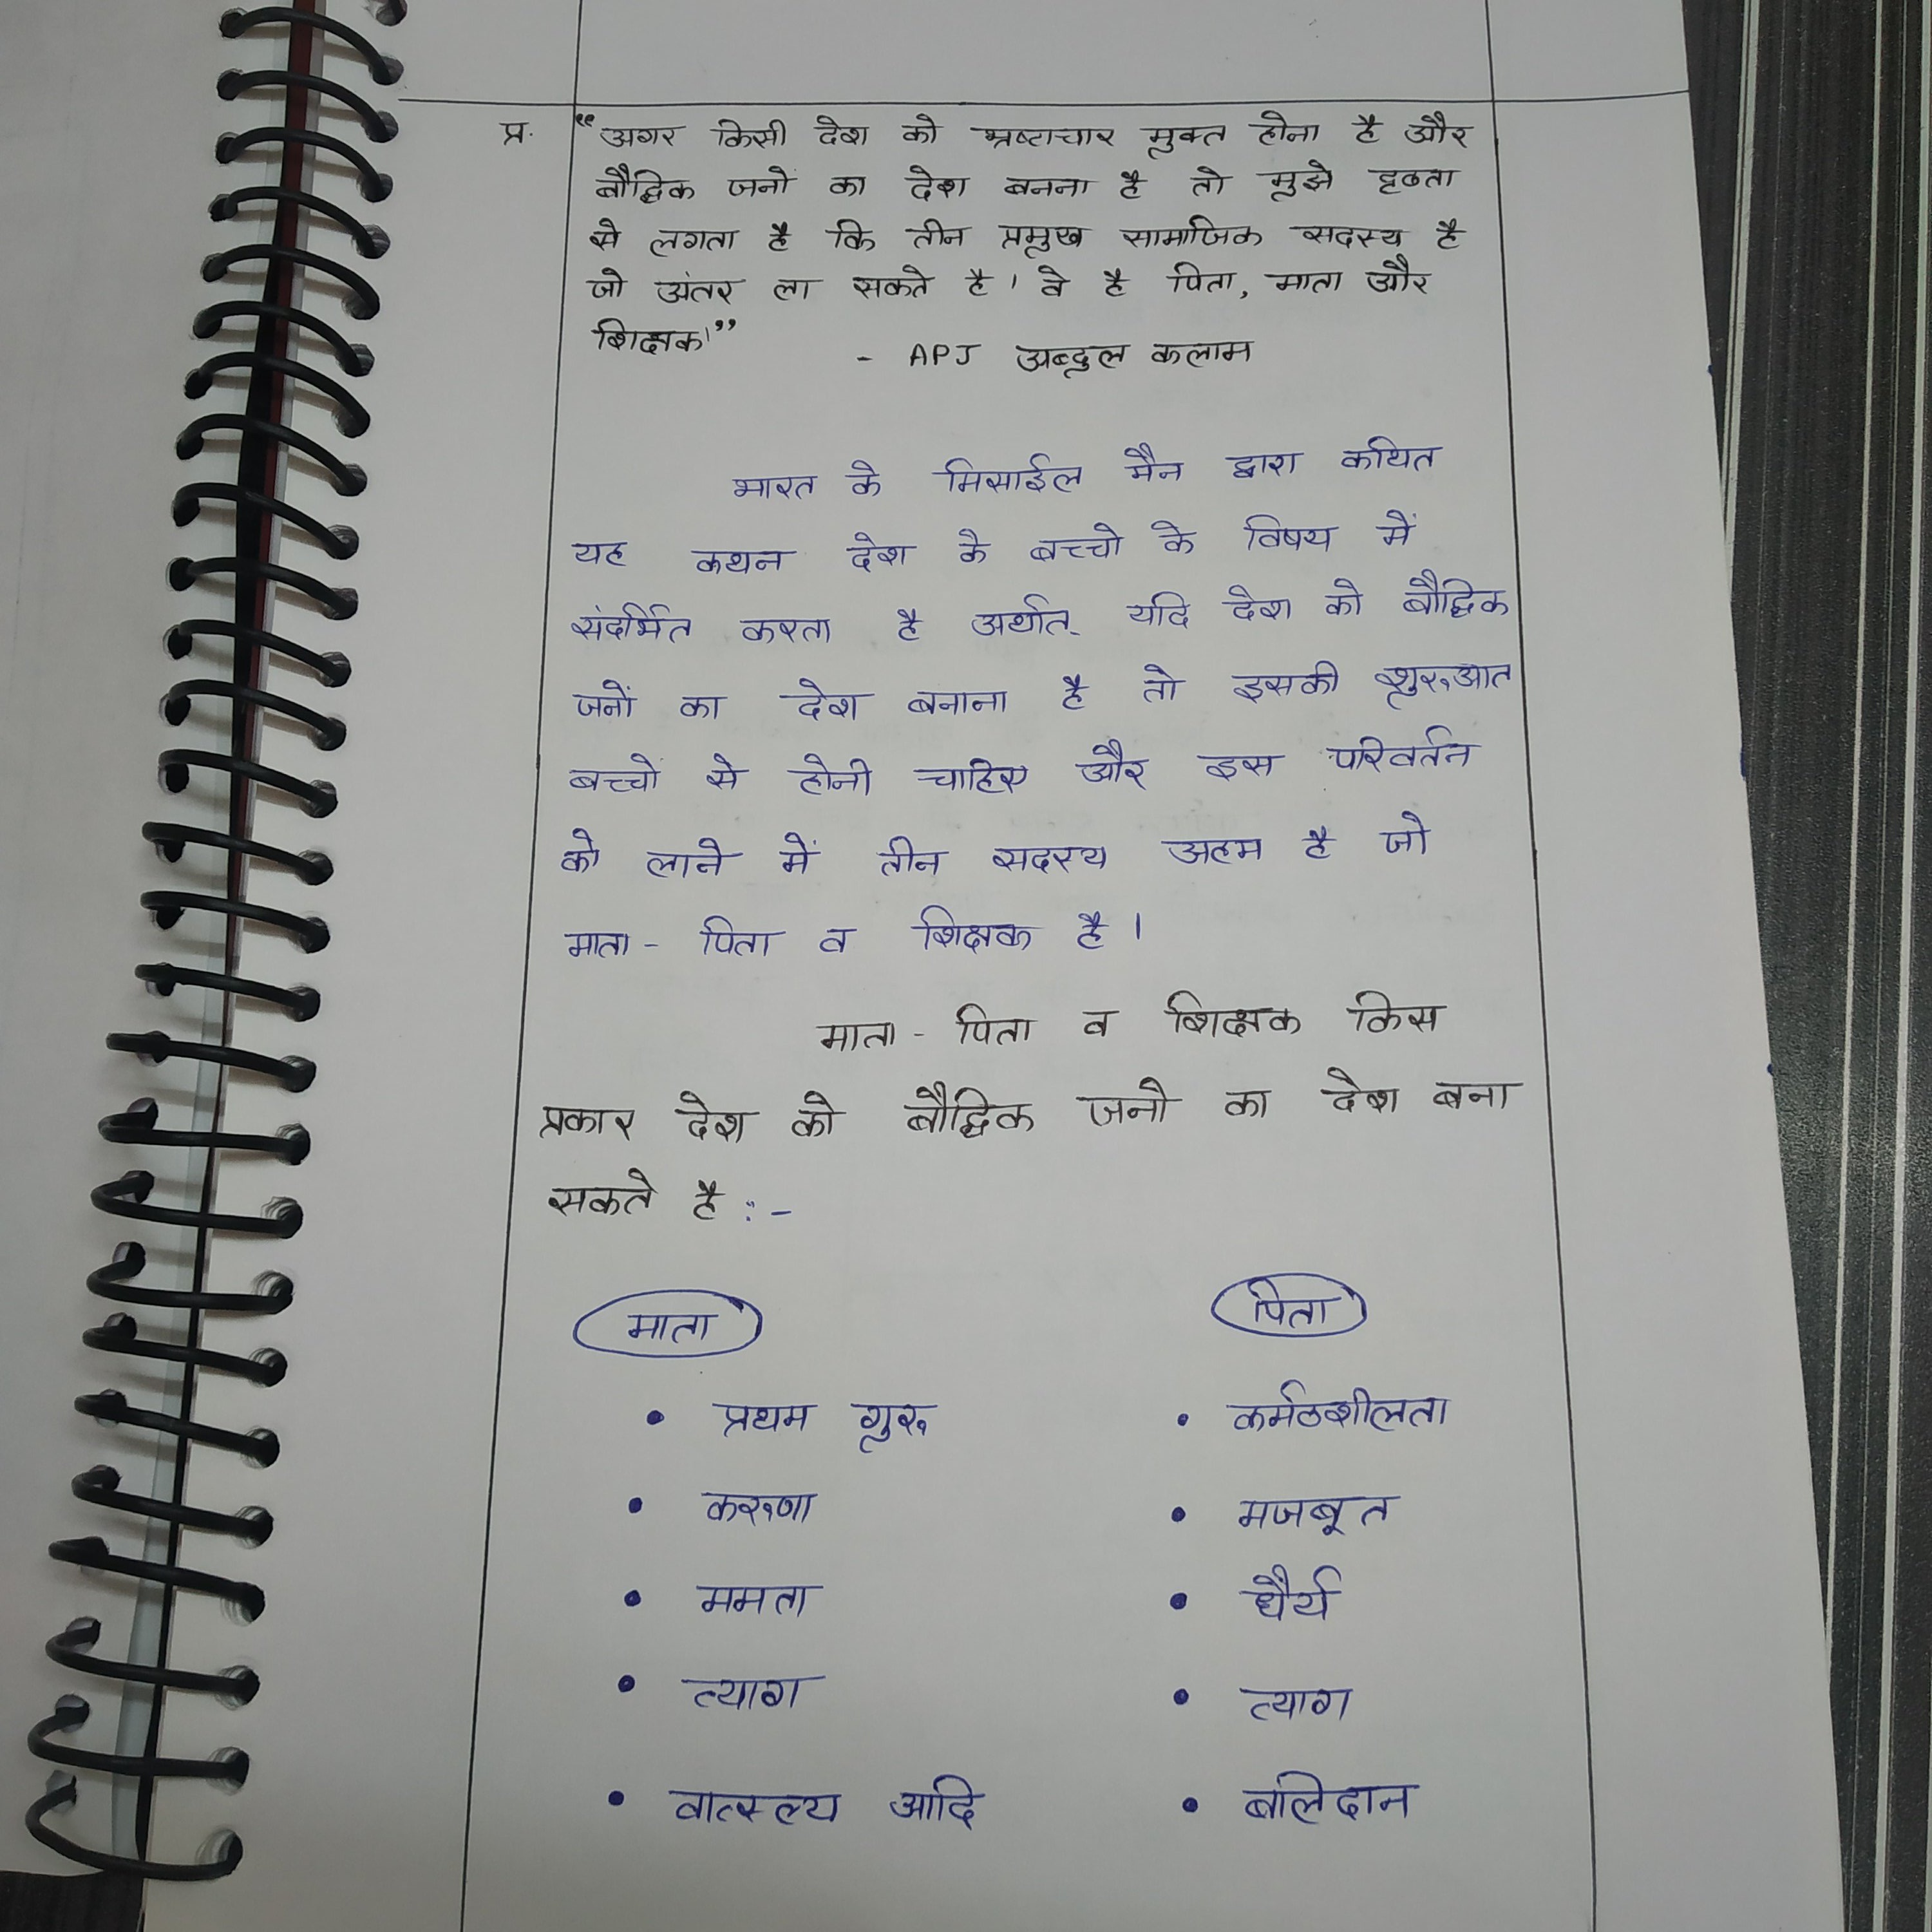 प्र. "अगर किसी देश को भ्रष्टाचार मुक्त होना है और
बौद्धिक जनों का देश बनना है तो मुझे दृढता
से लगता है कि तीन प्रमुख सामाजिक सदस्य है
जो अंतर ला सकते है। वे है पिता, माता और
शिक्षक।"
- APJ अब्दुल कलाम
भारत के मिसाईल मैन द्वारा कथित
यह कथन देश के बच्चो के विषय में
संदर्भित करता है अर्थात् यदि देश को बौद्धिक
जनों का देश बनाना है तो इसकी शुरुआत
बच्चों से होनी चाहिए और इस परिवर्तन
को लाने में तीन सदस्य अहम है जो
माता - पिता व शिक्षक है।
माता - पिता व शिक्षक किस
प्रकार देश को बौद्धिक जनो का देश बना
सकते है :-
माता पिता
• प्रथम गुरु • कर्मठशीलता
• करुणा • मजबूत
• ममता • धैर्य
• त्याग • त्याग
• वात्स्ल्य आदि • बलिदान